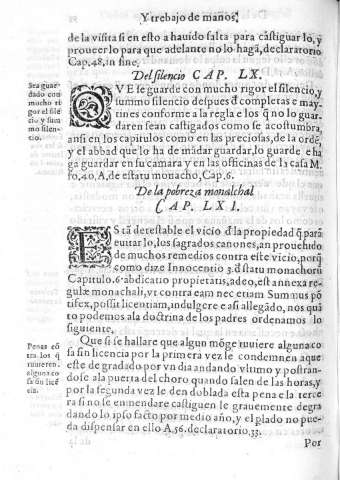 Y trebajo de manos,
de la visita si en esto a hauido falta para castiguar lo, y
proueer lo para que adelante no lo hagã, declaratorio
Cap. 48, in fine.
Del silencio CAP. LX.
Sea guar
dado con
mucho ri
gor el silẽ
cio y sum
mo silen-
cio.
QVE se guarde con mucho rigor el silencio, y
summo silencio despues ď completas e may-
tines conforme a la regla e los q̃ no lo guar
daren sean castigados como se acostumbra,
ansi en los capitulos como en las preciosas, de la ordẽ,
y el abbad que lo ha de mãdar guardar, lo guarde e ha
ga guardar en su camara y en las officinas de la casa M,
fo, 40, A, de estatu monacho, Cap. 6.
De la pobreza monalchal
CAP. LXI.
ESta detestable el vicio ď la propiedad q̃ para
euitar lo, los sagrados canones, an prouehido
de muchos remedios contra este vicio, porq̃
como dize Innocentio 3. ď statu monachorũ
Capitulo. 6. abdicatio propietatis, adeo, est annexa re-
gulæ monachali, vt contra eam nec etiam Summus põ
tifex, possit licentiam, indulgere e asi allegãdo, nos quã
to podemos a la doctrina de los padres ordenamos lo
siguiente.
Penas cõ
tra los q̃
tuuieren,
alguna co
sa sin licẽ
cia.
Que si se hallare que algun mõge tuuiere alguna co
sa sin licencia por la primera vez le condemnen a que
este de gradado por vn dia andando vltimo y postran-
dose a la puerta del choro quando salen de las horas, y
por la segunda vez le den doblada esta pena e la terce
ra si no se enmendare castiguen le grauemente degra
dando lo ipso facto por medio año, y el plado no pue-
da dispensar en ello A. 56. declaratorio. 33.
Por